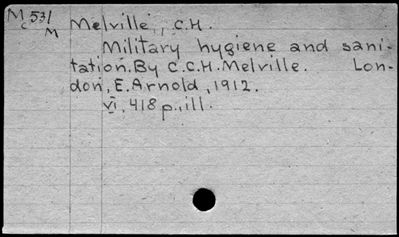 Mc531 Melville, C.H.
M
Military hygiene and sani-
tation. By C.C.H. Melville. Lon-
don, E. Arnold, 1912.
VI, 418 p., ill.